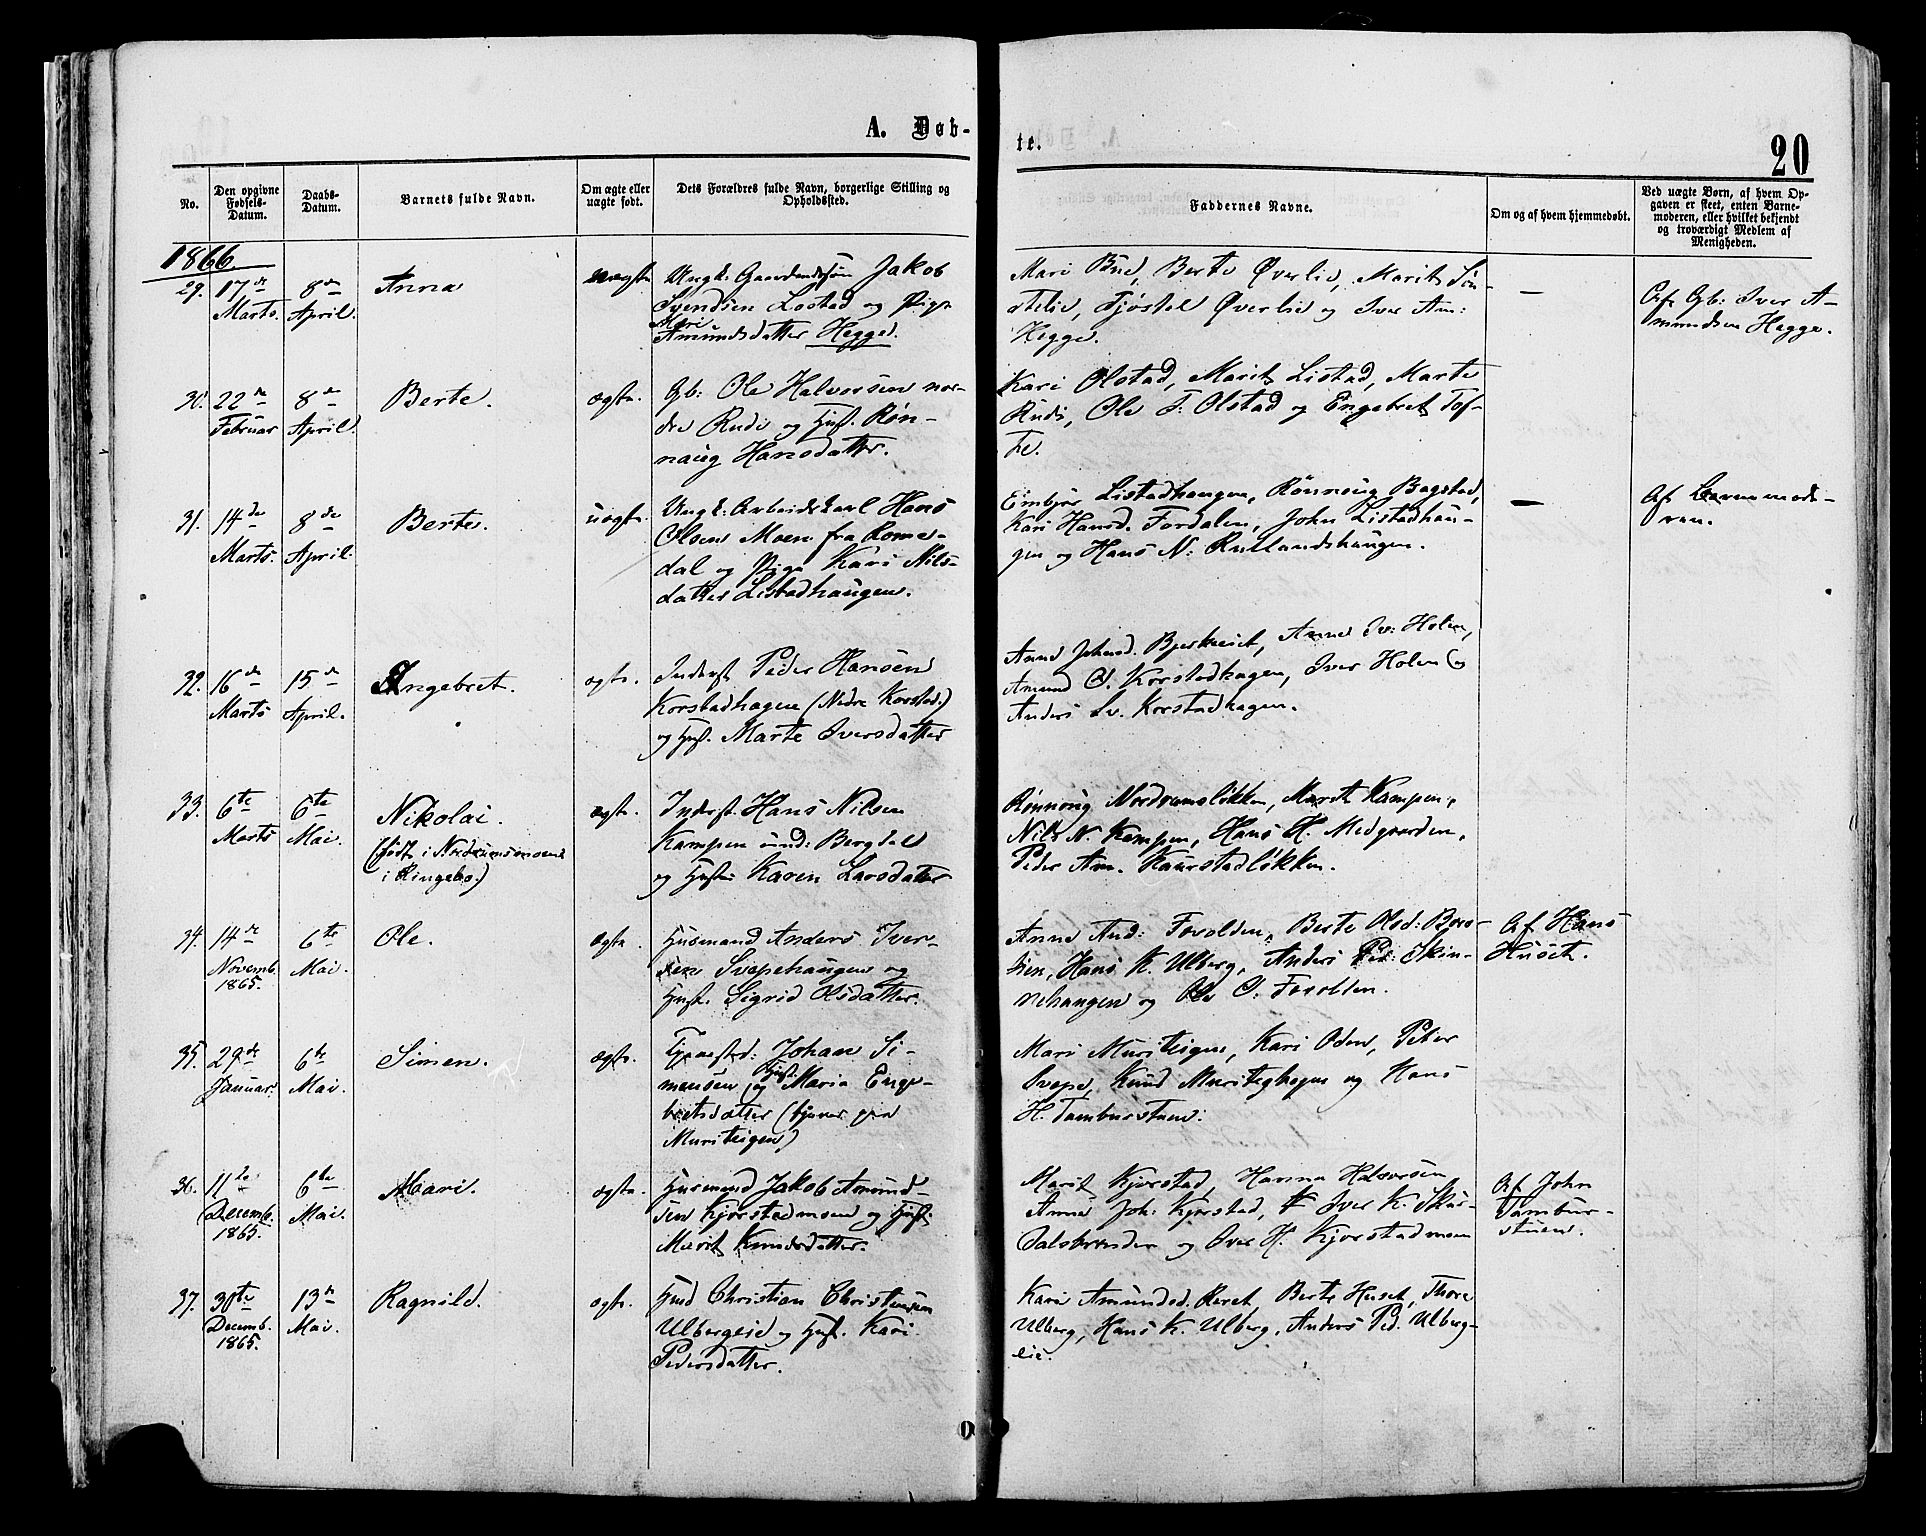 A. Døb-
te.
20
No.
Den opgivne
Fødsels-
Datum.
Daabs-
Datum.
Barnets fulde Navn.
Om ægte eller
uægte født.
Dets Forældres fulde Navn, borgerlige Stilling og
Opholdssted.
Faddernes Navne.
Om og af hvem hjemmedøbt.
Ved uægte Børn, af hvem Op-
gaven er skeet, enten Barne-
moderen, eller hvilket bekjendt
og troværdigt Medlem af
Menigheden.
1866.
29.
17de
Marts.
8de
April.
Anna
uægte
Ungk: Gaardmandssøn Jakob
Syendsen Lostad og Pige
Mari
Amundsdatter Hegge.
Mari Bue, Berte Øverlie, Marit Søn-
stelie, Tjøstel Øverlie og Iver Am:
Hegge.
—
Af Gb: Iver A-
mundsen Hegge.
30.
22de
Februar
8de
April.
Berte.
ægte.
Gb: Ole Halvorsen nor-
dre Rudi og Hust. Røn-
naug Hansdatter.
Kari Olstad, Marit Listad, Marte
Rudi, Ole T. Olstad og Engebret Tof-
te.
31.
14de
Marts.
8de
April.
Berte.
uægte.
Ungk: Arbeidskarl Hans
Olsen Moen fra Rome-
dal og Pige Kari Nils-
datter Listadhaugen.
Embjør Listadhaugen, Rønnoug Bagstad,
Kari Hansd. Fordalen, John Listadhau-
gen og Hans N: Ruslandshaugen.
—
Af Barnemode-
ren.
32.
16de
Marts
15de
April.
Engebret.
ægte.
Inderst Peder Hansen
Korstadhagen (Nedre Korstad.)
og Hust. Marte Iversdatter
Anne Johnsd. Bjerkeset, Anne Iv: Holen,
Amund O. Korstadhagen, Iver Holen og
Anders Iv. Korstadhagen.
33.
6te
Marts
6te
Mai.
Nikolai.
(født i Nordrumsmoen
i Ringebo.)
ægte.
Inderst. Hans Nilsen
Kampen und: Bergdal
og Hustru Karen Larsdatter
Rønnoug Nordrumsløkken, Marit Kampen,
Nils N. Kampen, Hans H. Medgaarden,
Peder Am. Kaurstadløkken.
34.
14de
Novemb.
1865.
6te
Mai.
Ole.
ægte.
Husmand Anders Iver-
sen Svepehaugen og
Hust. Sigrid Olsdatter.
Anne And: Forolden, Berte Olsd: Bers-
sien, Hans K. Ulberg, Anders Ped: Skin-
nehaugen og Ole I. Forolden.
Af Hans
Huset.
35.
29de
Januar.
6te
Mai.
Simen.
ægte.
Tjenested: Johan Si-
mensen og Hust. Maria Enge-
bretsdatter (tjener paa
Muriteigen)
Mari Muriteigen, Kari Oden, Peter
Svepe, Knud Muriteighagen og Hans
H. Tamburstuen.
36.
11te
Decemb.
1865.
6te
Mai.
Mari.
ægte.
Husmand Jakob Amund-
sen Kjorstadmoen og Hust.
Marit Knudsdatter.
Marit Kjorstad, Hanna Halvorsen
Anne Joh: Kjorstad, Iver K. Skur-
dalsbrænden og Iver H. Kjorstadmoen
Af John
Tambur-
stuen.
37.
30te
Decemb.
1865.
13de
Mai.
Ragnild.
ægte.
Husd Christian Christensen
Ulbergeie og Hust. Kari
Pedersdatter.
Kari Amundsd. Reret, Berte Huset, Thore
Ulberg, Hans K. Ulberg, Anders Ped. Ulberg-
eie.